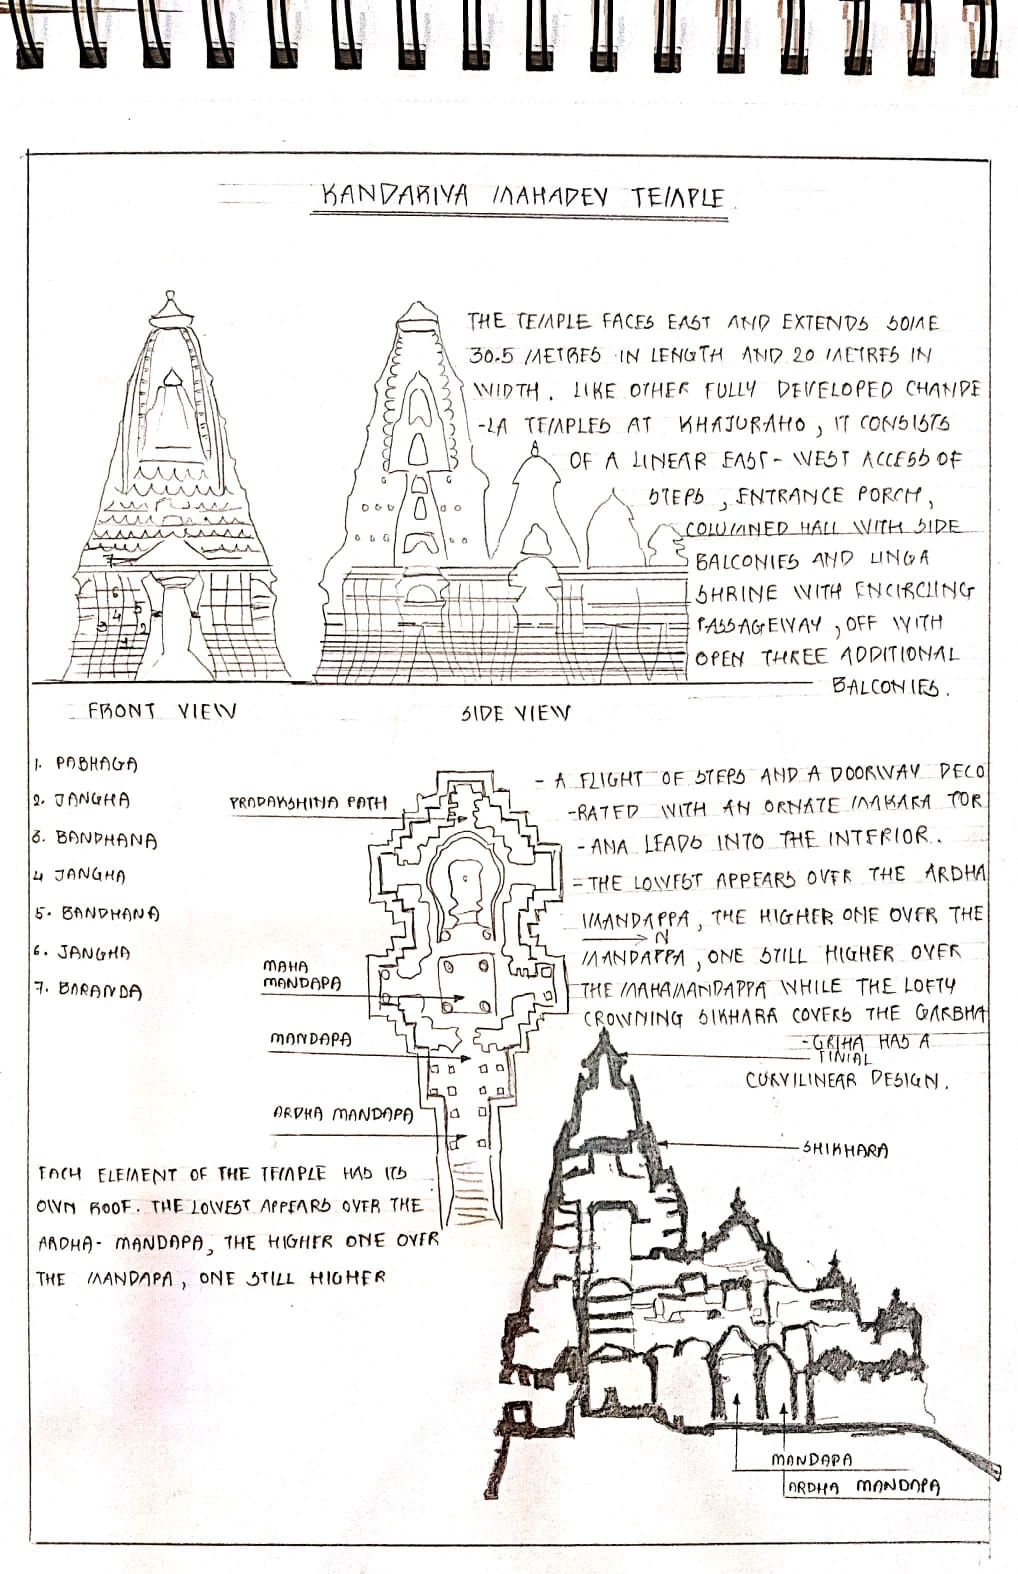 KANDARIYA MAHADEV TEMPLE
THE TEMPLE FACES EAST AND EXTENDS SOME
30.5 METRES IN LENGTH AND 20 METRES IN
WIDTH. LIKE OTHER FULLY DEVELOPED CHANDE
-LA TEMPLES AT KHAJURAHO, IT CONSISTS
OF A LINEAR EAST-WEST ACCESS OF
STEPS, ENTRANCE PORCH,
COLUMNED HALL WITH SIDE
BALCONIES AND LINGA
SHRINE WITH ENCIRCLING
PASSAGEWAY, OFF WITH
OPEN THREE ADDITIONAL
BALCONIES.
7
6
5
4
3
2
1
FRONT VIEW
SIDE VIEW
1. PABHAGA
2. JANGHA
3. BANDHANA
4 JANGHA
5. BANDHANA
6. JANGHA
7. BARANDA
PRADAKSHINA PATH
MAHA
MANDAPA
MANDAPA
ARDHA MANDAPA
N
- A FLIGHT OF STEPS AND A DOORWAY DECO
-RATED WITH AN ORNATE MAKARA TOR
- ANA LEADS INTO THE INTERIOR.
= THE LOWEST APPEARS OVER THE ARDHA
MANDAPPA, THE HIGHER ONE OVER THE
MANDAPPA, ONE STILL HIGHER OVER
THE MAHAMANDAPPA WHILE THE LOFTY
CROWNING SIKHARA COVERS THE GARBHA
-GRIHA HAS A
CURVILINEAR DESIGN.
FINIAL
SHIKHARA
EACH ELEMENT OF THE TEMPLE HAS ITS
OWN ROOF. THE LOWEST APPEARS OVER THE
ARDHA- MANDAPA, THE HIGHER ONE OVER
THE MANDAPA, ONE STILL HIGHER
MANDAPA
ARDHA MANDAPA